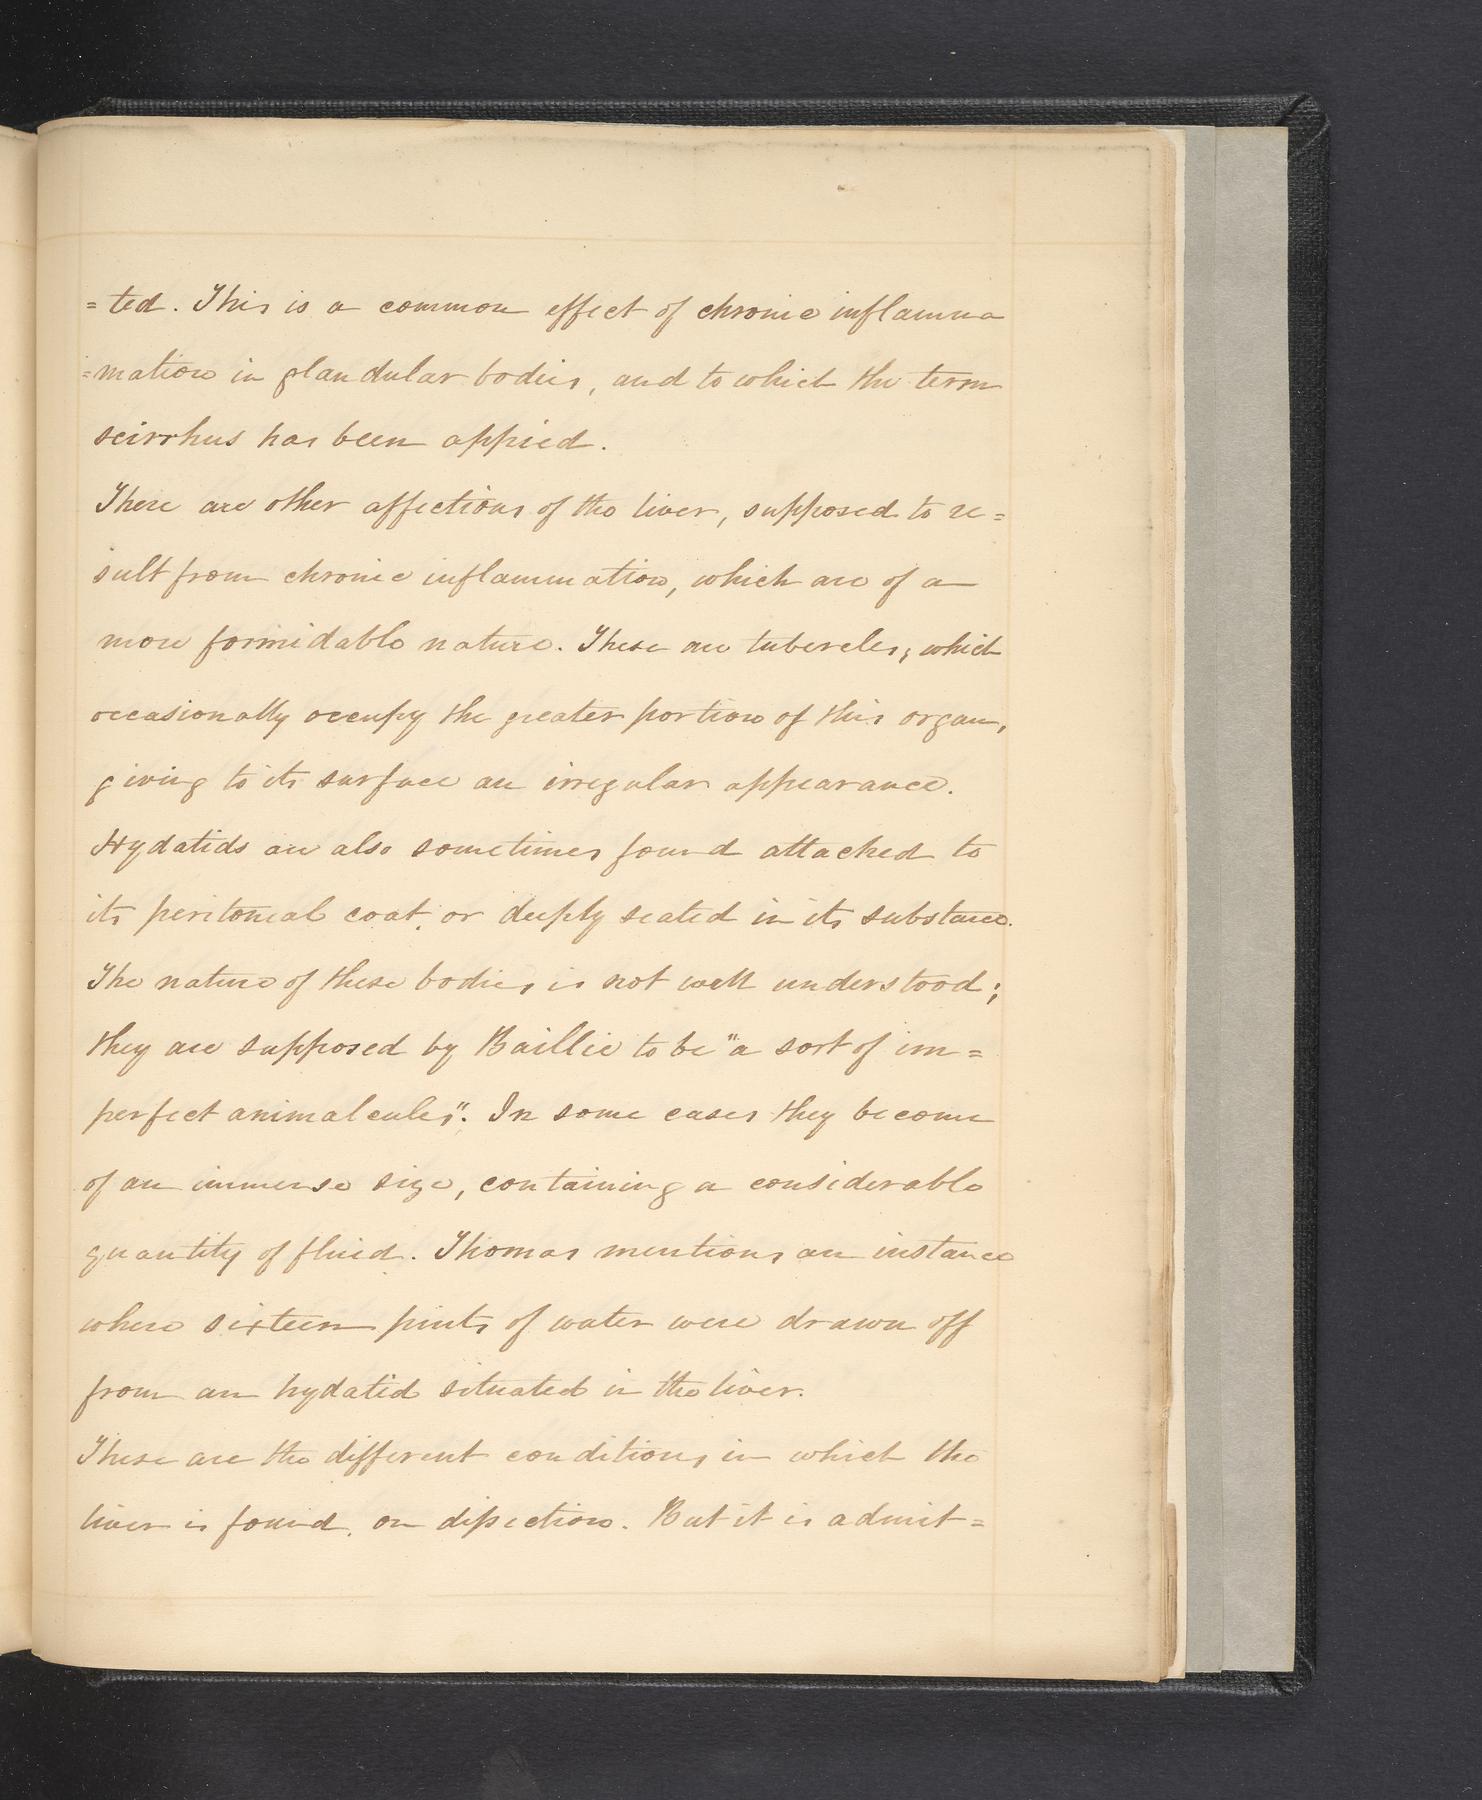 =ted. This is a common effect of chronic inflamma
=mation in glandular bodies, and to which the term
scirrhus has been appied.
There are other affections of the liver, supposed to re=
sult from chronic inflammation, which are of a
more formidable nature. These are tubercles, which
occasionally occupy the greater portion of this organ,
giving to its surface an irregular appearance.
Hydatids are also sometimes found attached to
its peritoneal coat, or deeply seated in its substance.
The nature of these bodies is not well understood;
they are supposed by Baillie to be "a sort of im=
perfect animalcules". In some cases they become
of an immense size, containing a considerable
quantity of fluid. Thomas mentions an instance
where sixteen pints of water were drawn off
from an hydatid situated in the liver.
These are the different conditions in which the
liver is found, on dissection. But it is admit=